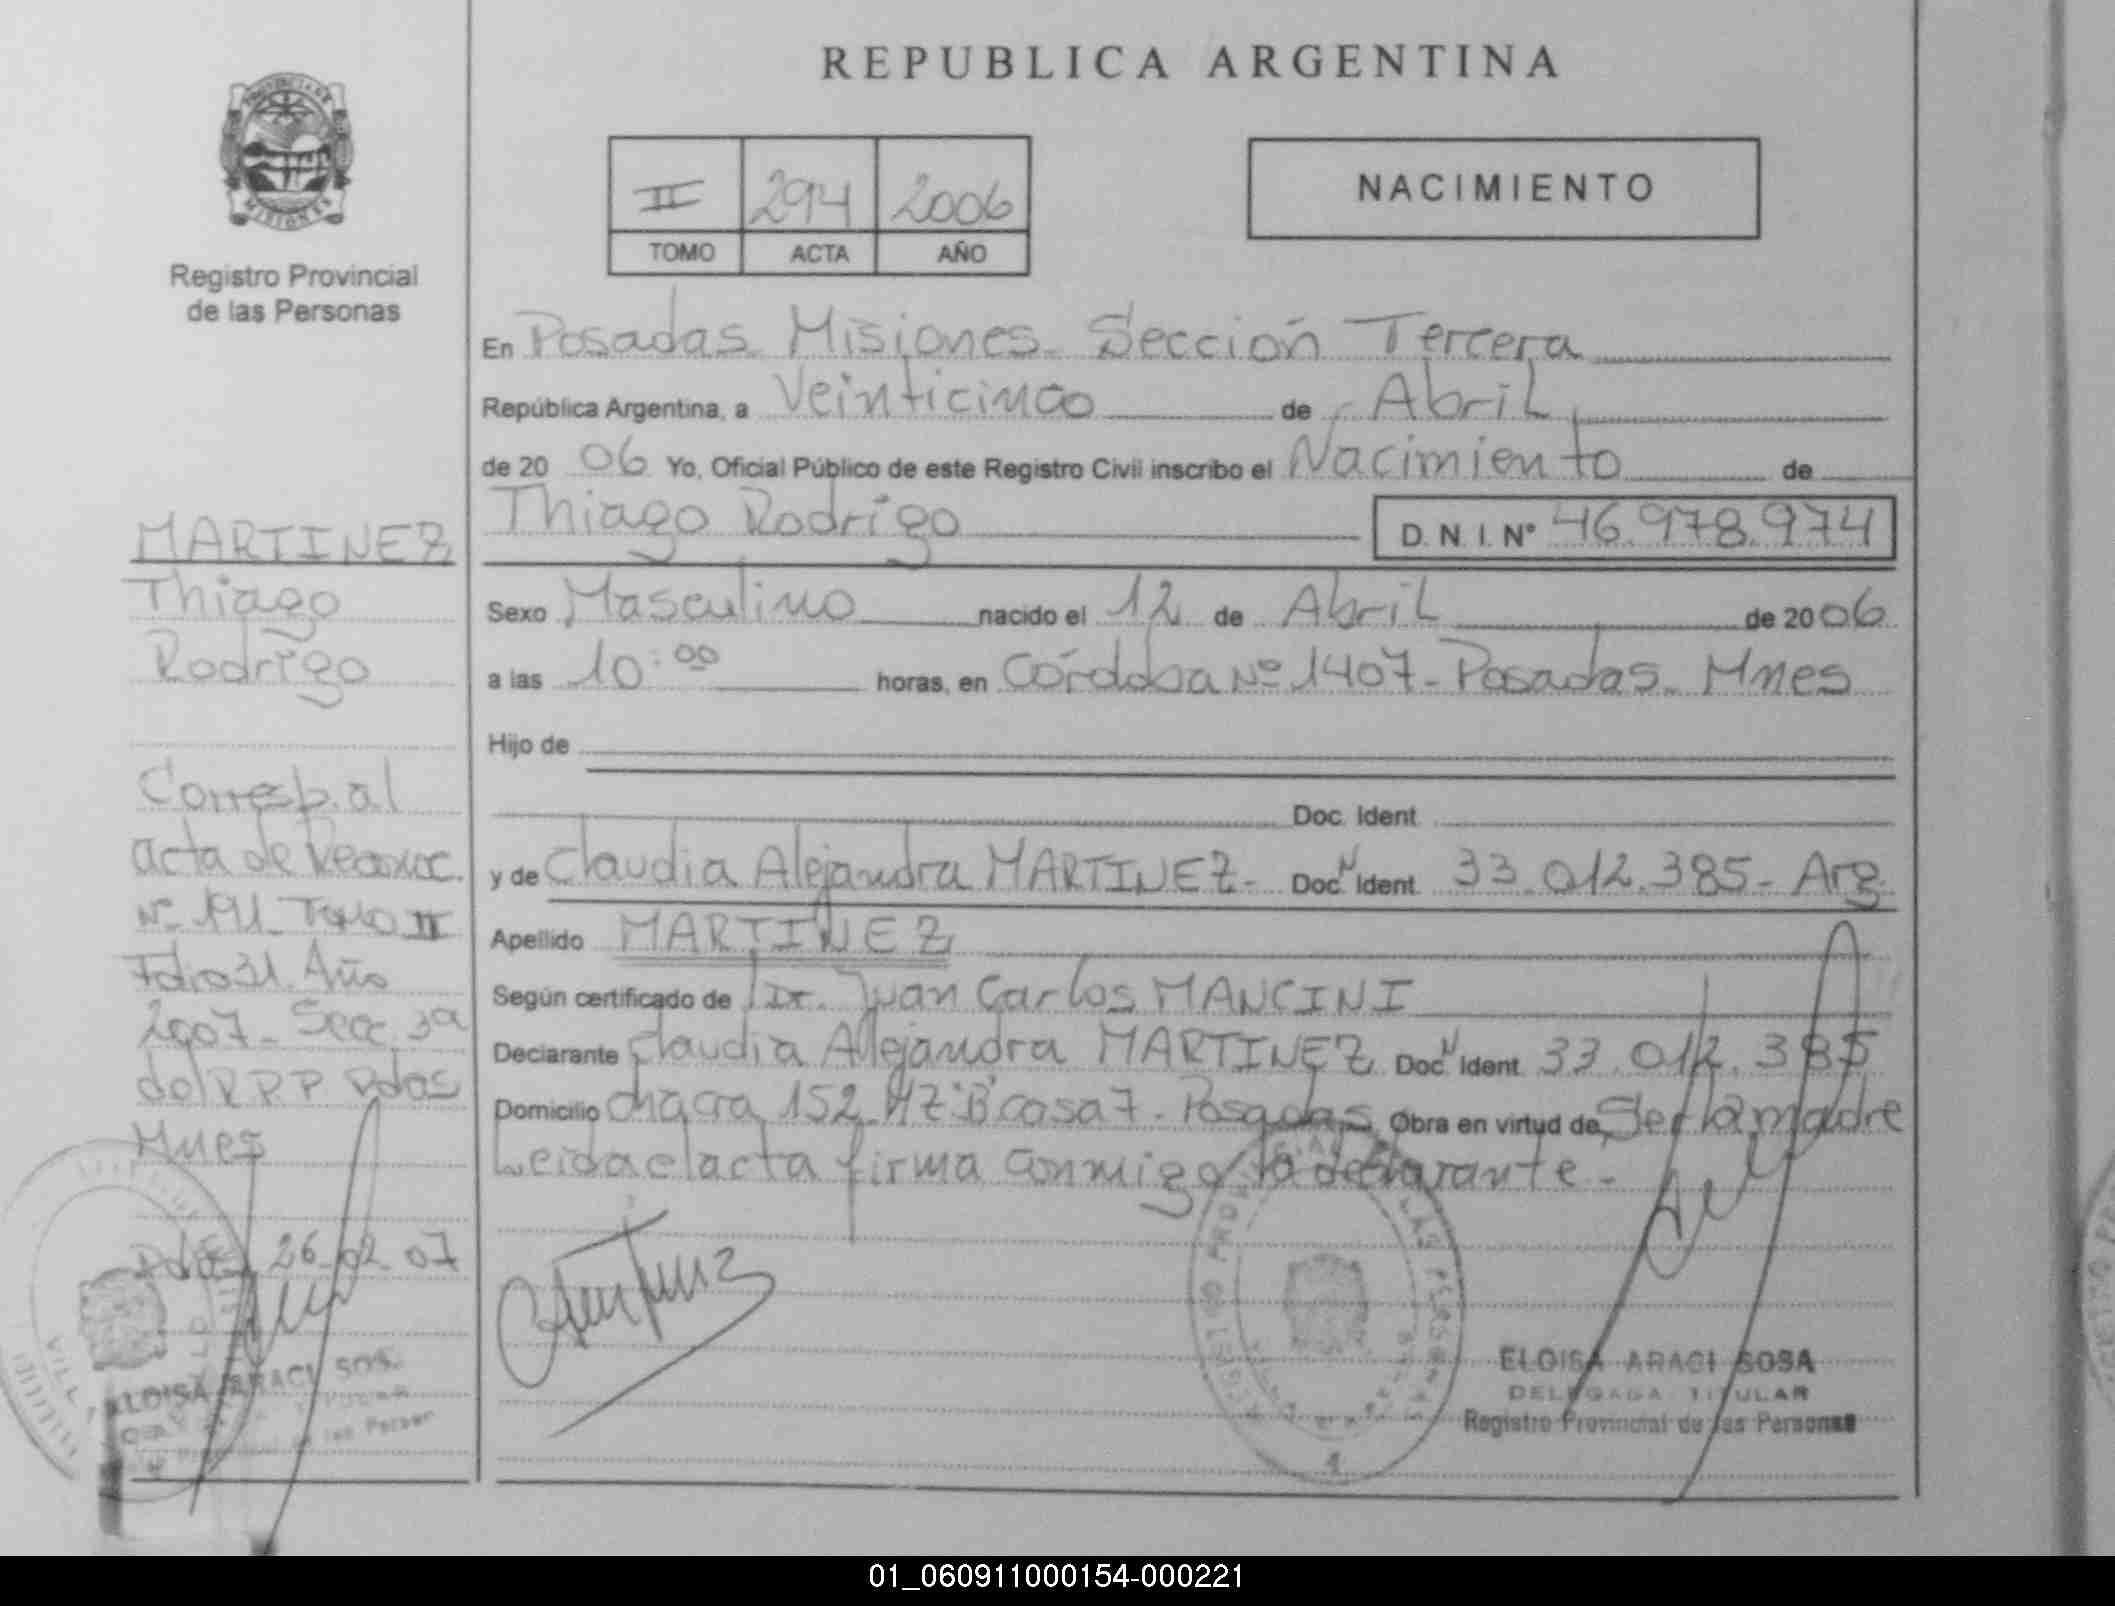 REPUBLICA ARGENTINA
PROVINCIA DE
MISIONES
Registro Provincial
de las Personas
II 294 2006
TOMO ACTA AÑO
NACIMIENTO
En Posadas Misiones Sección Tercera
República Argentina, a Veinticinco de Abril
de 20 06 Yo, Oficial Público de este Registro Civil inscribo el Nacimiento de
Thiago Rodrigo D.N.I.Nº 46.978.974
Sexo Masculino nacido el 12 de Abril de 2006
a las 10:00 horas, en Córdoba Nº 1407 - Posadas - Mnes
Hijo de
Doc. Ident.
y de Claudia Alejandra MARTINEZ - Doc. N Ident. 33.012.385 - Arg
Apellido MARTINEZ
Según certificado de Dr. Juan Carlos MANCINI
Declarante Claudia Alejandra MARTINEZ Doc. N Ident. 33.012.385
Domicilio chacra 152 MZ"B" casa 7 - Posadas Obra en virtud de Ser la madre
Leida el acta firma conmigo la declarante -
MARTINEZ
Thiago
Rodrigo
Corresp. al
acta de Reconoc.
Nº 191 - Tomo II
Folio 31. Año
2007 - Secc. 3ª
del R.P.P Pdas
Mnes
Pdas 26-02-07
ELOISA ARACI SOSA
ELOISA ARACI SOSA
DELEGADA TITULAR
Registro Provincial de las Personas
01_060911000154-000221